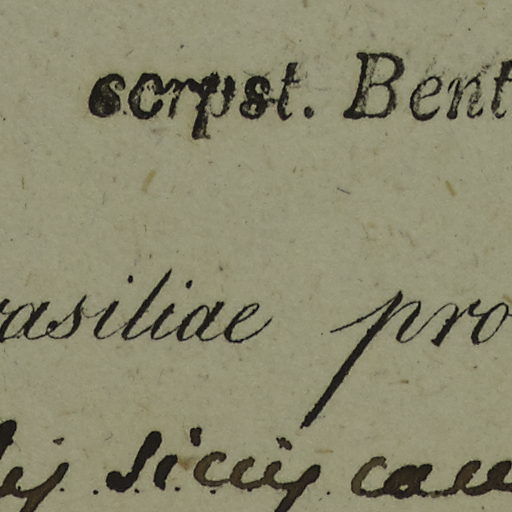 scrpst. Bent
rasiliae pro
siccis cam